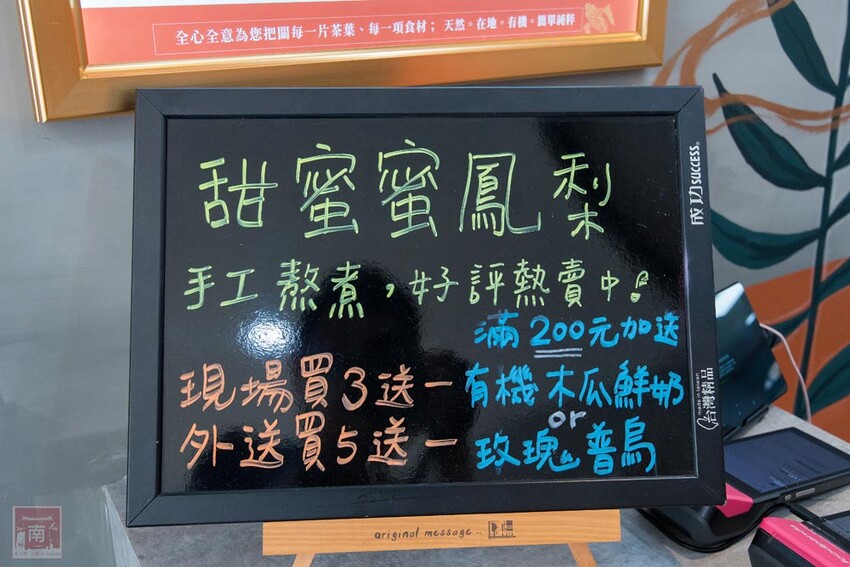 全心全意為您把關每一片茶葉、每一項食材；天然。在地。有機。簡單純粹
甜蜜蜜鳳梨
手工熬煮，好評熱賣中!
滿200元加送
現場買3送一
有機木瓜鮮奶
or
外送買5送一
玫瑰普烏
成功SUCCESS®
made in taiwan
台灣精品
original message
南